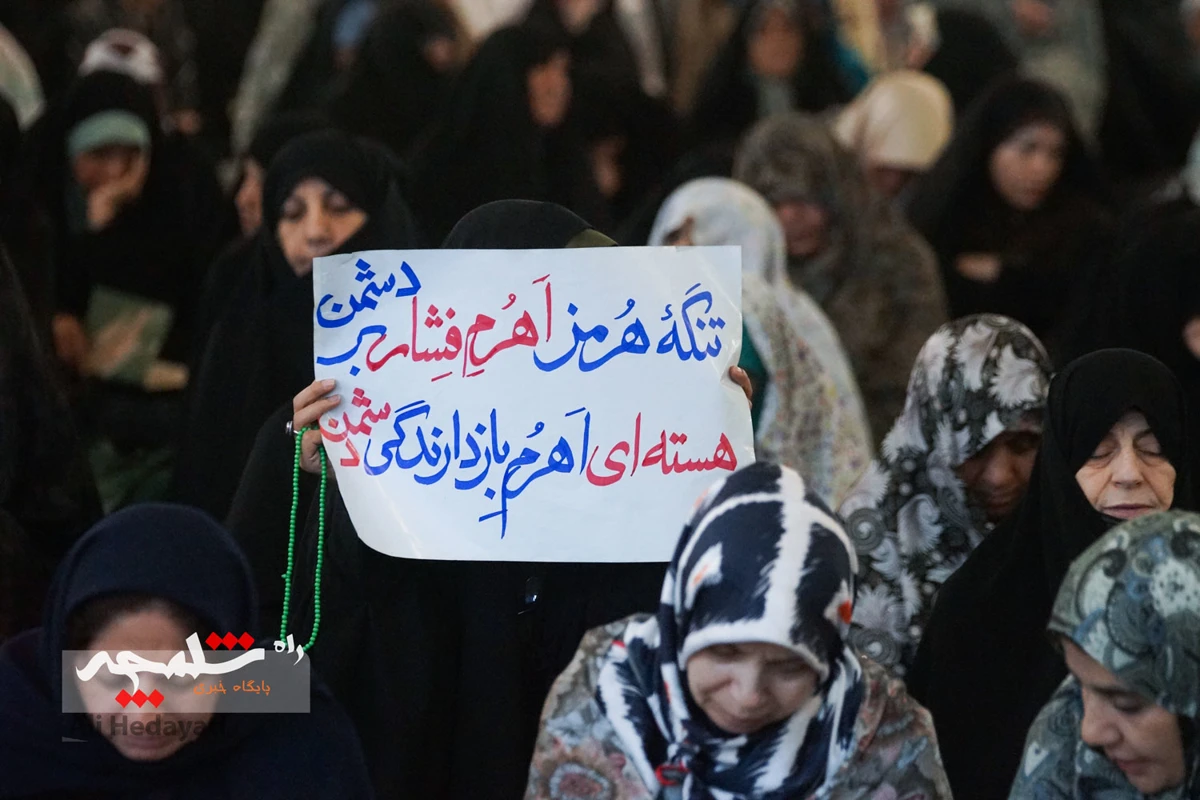 تنگهٔ هُرمز اَهرُمِ فِشار بر دشمن
هسته ای اَهرُمِ بازدارندگی دشمن
راه شلمچه
پایگاه خبری
Ali Hedaya